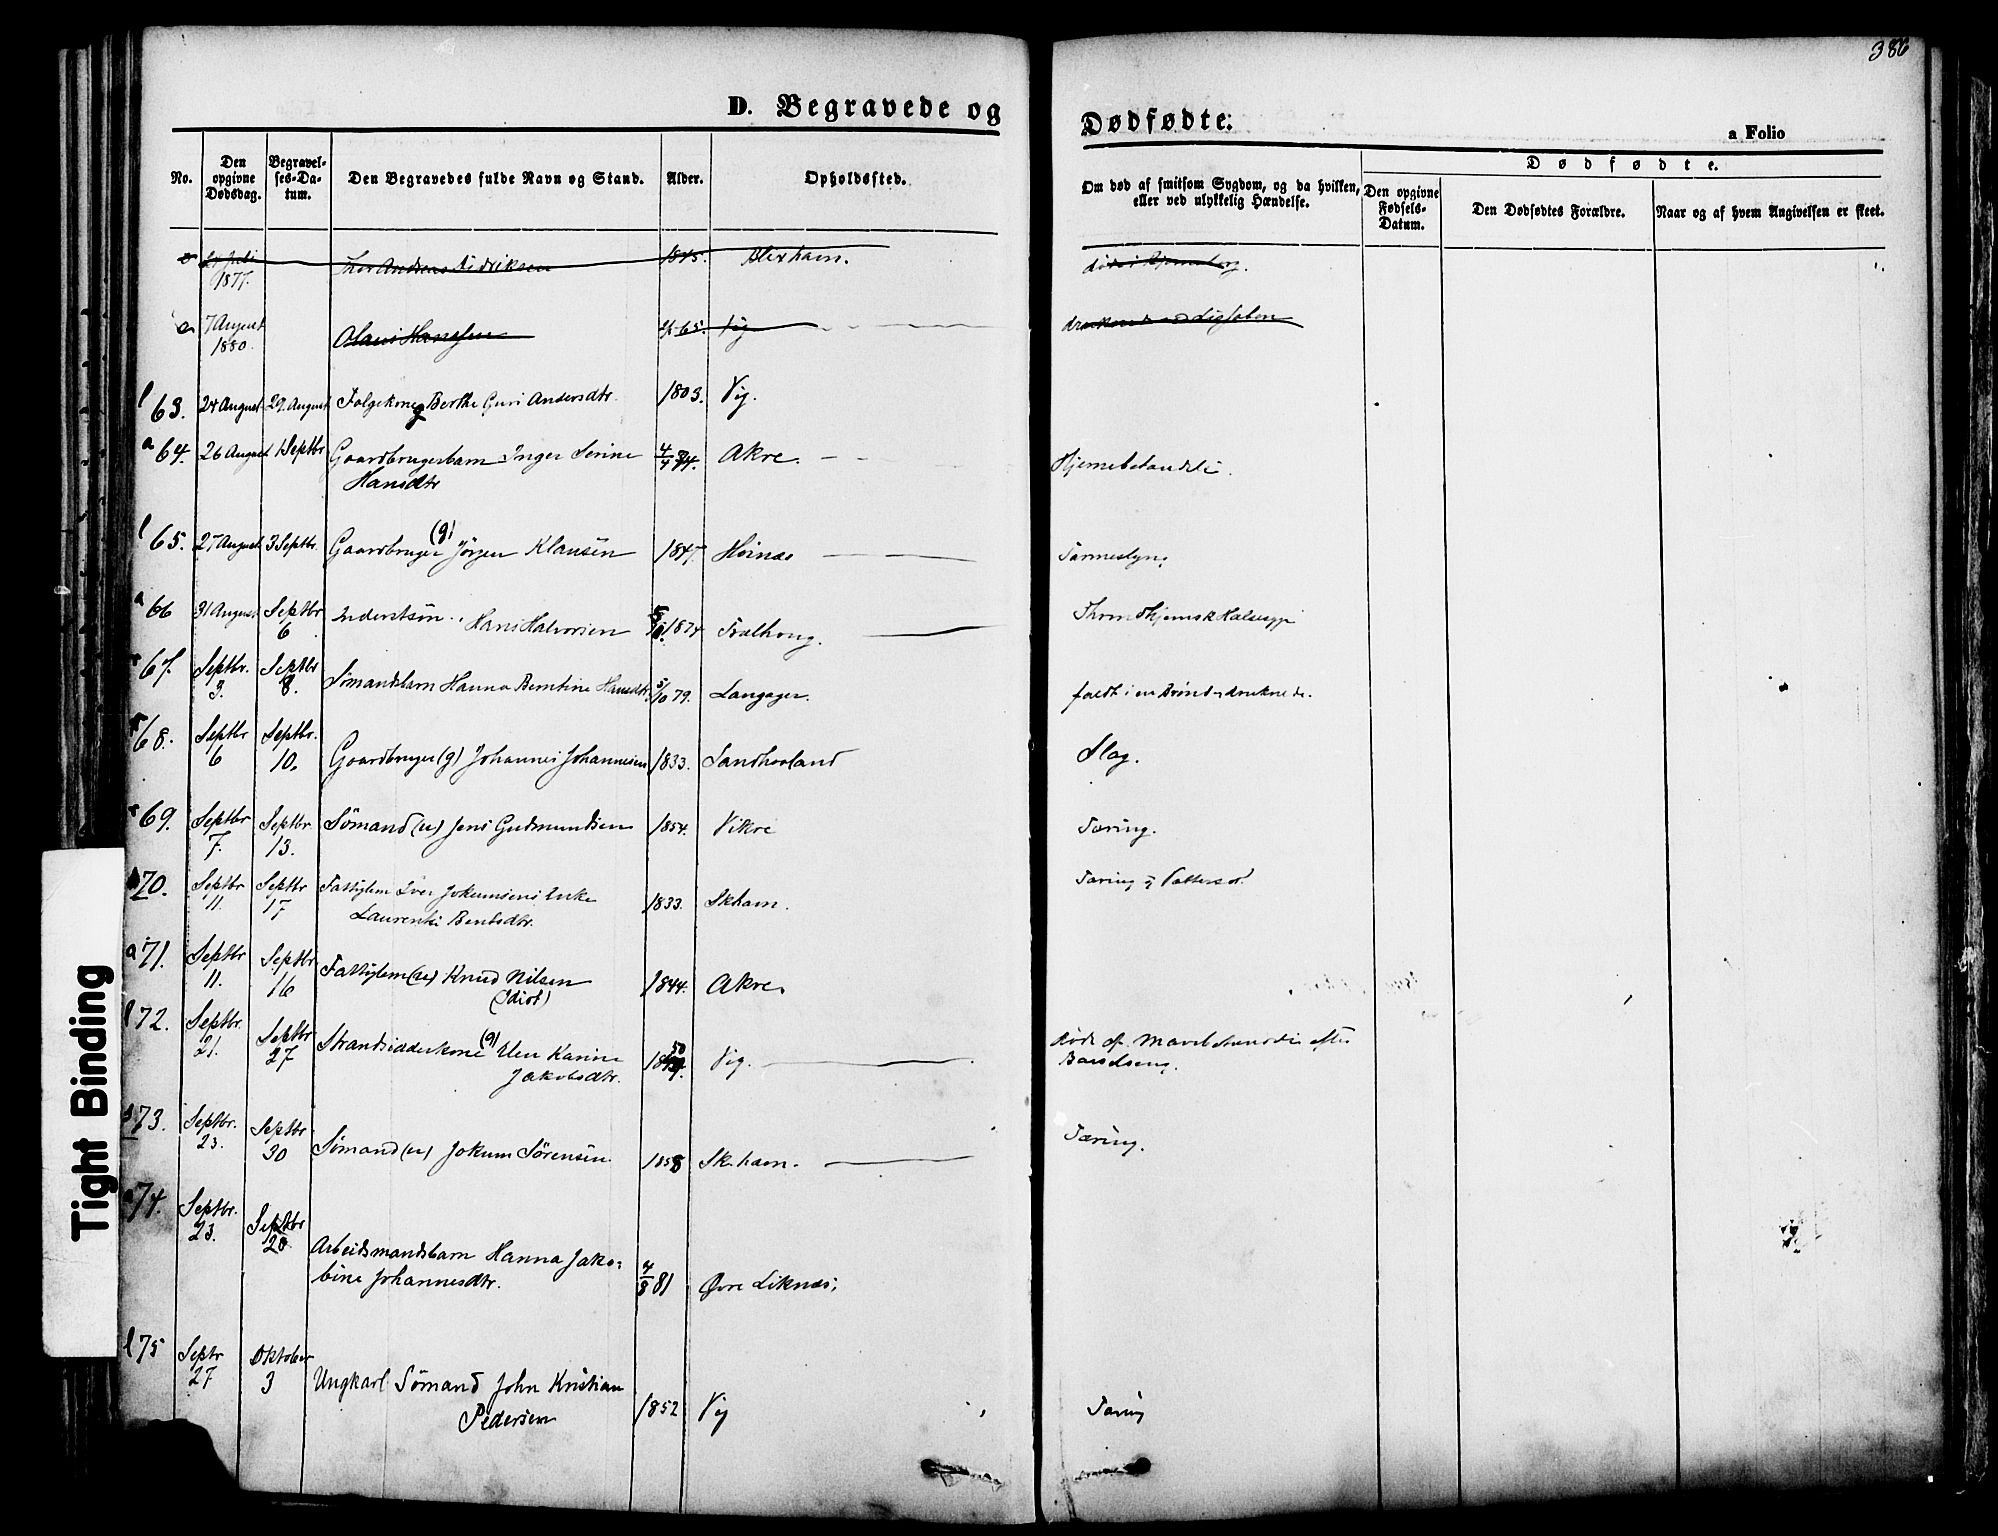 386
D. Begravede og Dødfødte.
a Folio
No.
Den opgivne Dødsdag.
Begravelses-Datum.
Den Begravedes fulde Navn og Stand.
Alder.
Opholdssted.
Om død af smitsom Sygdom, og da hvilken, eller ved ulykkelig Hændelse.
Dødfødte.
Den opgivne Fødsels-Datum.
Den Dødfødtes Forældre.
Naar og af hvem Angivelsen er skeet.
1877. Andreas Didriksen 1845.
7 August 1880. Olaus Hansen 65. Vig
l 63. 24 August 29. August Folgekone Berthe Guri Andersdtr. 1803. Vig.
a 64. 26 August 1 Septbr Gaardbrugerbarn Inger Serine 4/4 74. Akre.
Hansdtr
l 65. 27 August 3 Septbr. Gaardbruger (g) Jörgen Klausen 1847. Høinæs
a 66 31 August Septbr 6 Hans Halvorsen 1874 Throndhjemsk Halssyge
67. Septbr. 3. Septbr 8. Sömandsbarn Hanna Berntine Hansdtr. 5/10 79. Langager. faldt i en Brönd druknede.
68. Septbr 6 Septbr. 10. Gaardbruger (g) Johannes Johannesen 1833. Sandhaaland Slag.
69. Septbr 7. Septbr 13. Sömand (u) Jens Gudmundsen 1854. Vikre Tæring.
70. Septbr 11. Septbr 17 Fattiglem Iver Jokumsens Enke 1833. Skhavn. Tæring & Vattersot
Laurentse Berntsdtr.
a 71. Septbr 11. Septbr 16 Fattiglem (u) Knud Nilsen 1844. Akre.
(Idiot)
l 72. Septbr. 21. Septbr 27 Strandsidderkone (g) Elen Karine Vig. af efter
Jakobsdtr. Barselseng.
73. Septbr. 23. Septbr 30 Sömand (u) Jokum Sörensen 1858 Sk.havn. Tæring.
a 74. Septbr. 23. Septbr 28. Arbeidsmandsbarn Hanna Jako-
bine Johannesdtr. 4/8 81 Øvre Liknæs.
l 75 Septr 27 Oktober 3 Ungkarl Sömand John Kristian
Pedersen 1852 Vig Tæring
Tight Binding